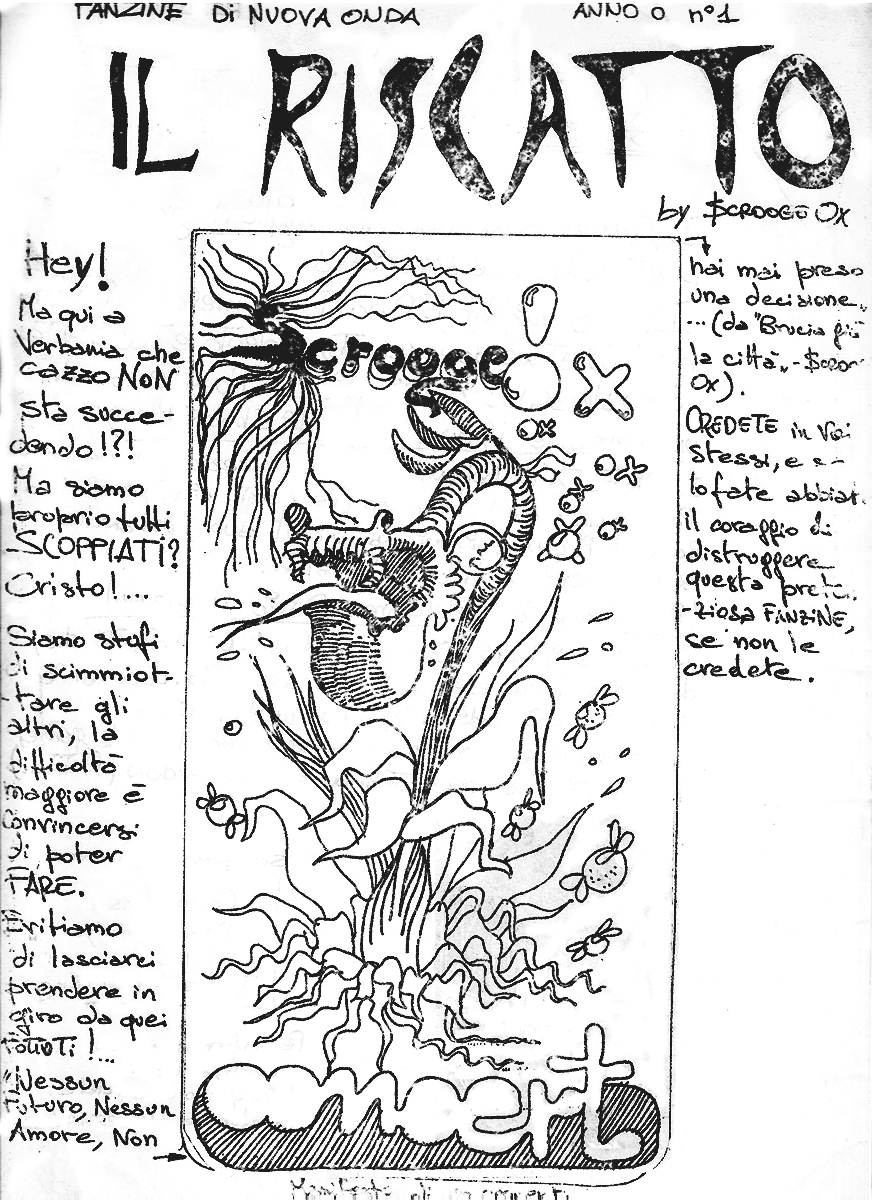 FANZINE Di NUOVA ONDA ANNO 0 n°1
IL RISCATTO
by $CROOGE OX
Hey!
Ma qui a
Verbania che
cazzo NON
sta succe-
dendo!?!
Ma siamo
proprio tutti
SCOPPIATi?
Cristo!...
Siamo stufi
di scimmiot-
tare gli
altri, la
difficoltà
maggiore è
convincersi
di poter
FARE.
Evitiamo
di lasciarci
prendere in
giro da quei
!...
"Nessun
Futuro, Nessun
Amore, Non
hai mai preso
una decisione"
...(da "Brucia già
la città"-
OX).
CREDETE in voi
stessi, e se
lo fate abbiat
il coraggio di
distruggere
questa prete
-ziosa FANZiNE,
se non le
credete.
Scrooge OX
concert
Manifesto di un concerto